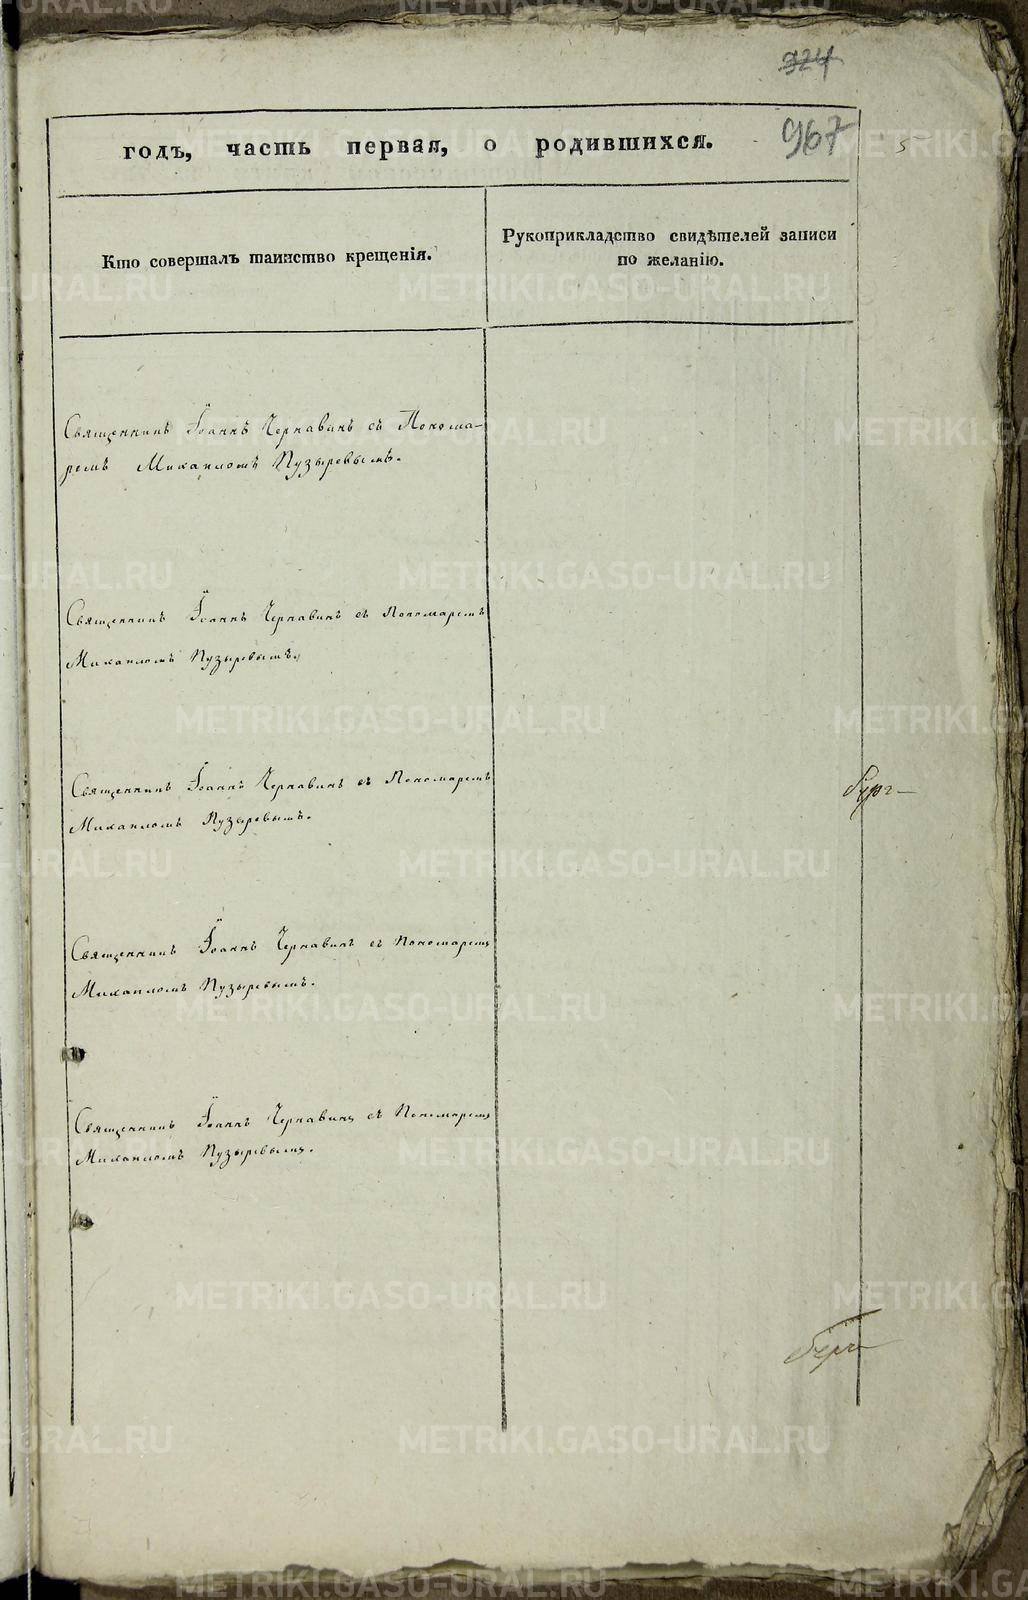 324
967
годъ, часть первая, о родившихся.
Кто совершалъ таинство крещенія.
Рукоприкладство свидѣтелей записи
по желанію.
Священникъ Іоаннъ Чернавинъ съ Понома-
ремъ Михаиломъ Пузыревымъ.
Священникъ Іоаннъ Чернавинъ съ Пономаремъ
Михаиломъ Пузыревымъ
Священникъ Іоаннъ Чернавинъ съ Пономаремъ
Михаиломъ Пузыревымъ.
Священникъ Іоаннъ Чернавинъ съ Пономаремъ
Михаиломъ Пузыревымъ.
Священникъ Іоаннъ Чернавинъ съ Пономаремъ
Михаиломъ Пузыревымъ.
METRIKI.GASO-URAL.RU